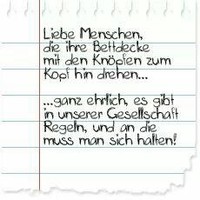 Liebe Menschen,
die ihre Bettdecke
mit den Knöpfen zum
Kopf hin drehen...
...ganz ehrlich, es gibt
in unserer Gesellschaft
Regeln, und an die
muss man sich halten!